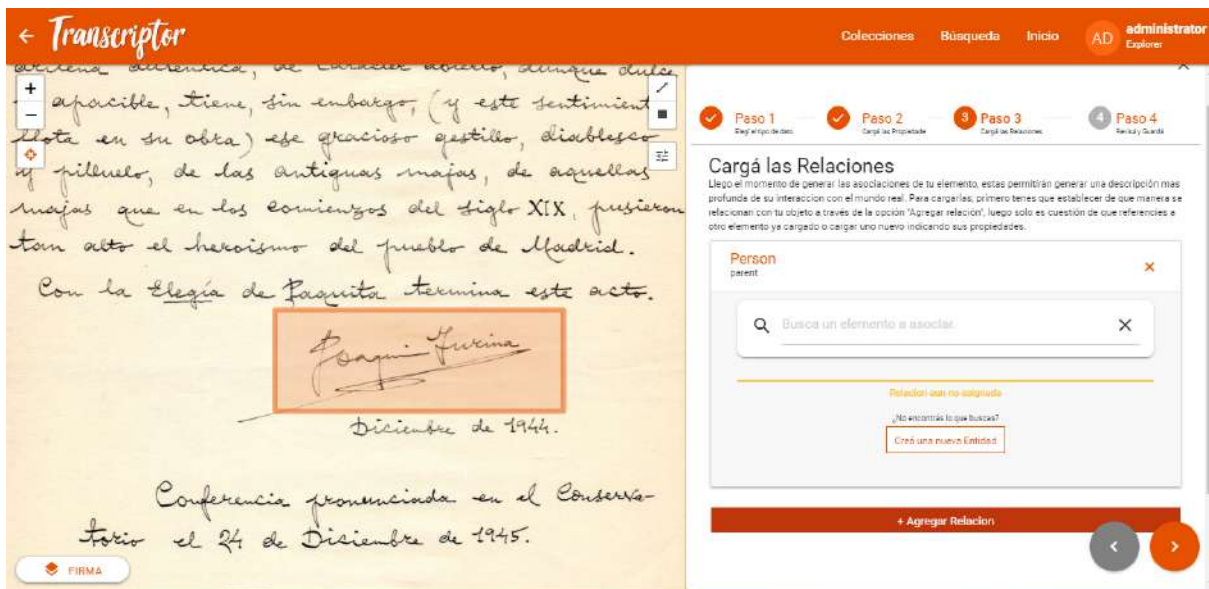 ← Transcriptor
Colecciones Búsqueda Inicio AD administrator
Explorer
auténtica, de carácter abierto, aunque dulce
y apacible, tiene, sin embargo, (y este sentimient
flota en su obra) ese gracioso gestillo, diablesco
y pilluelo, de las antiguas majas, de aquellas
majas que en los comienzos del siglo XIX, pusieron
tan alto el heroismo del pueblo de Madrid.
Con la Elegía de Paquita termina este acto.
Joaquin Turina
Diciembre de 1944.
Conferencia pronunciada en el Conserva-
torio el 24 de Diciembre de 1945.
FIRMA
Paso 1
Elegí el tipo de dato
Paso 2
Cargá las Propiedade
3 Paso 3
Cargá las Relaciones
4 Paso 4
Revisá y Guardá
Cargá las Relaciones
Llego el momento de generar las asociaciones de tu elemento, estas permitirán generar una descripción mas
profunda de su interaccion con el mundo real. Para cargarlas, primero tenes que establecer de que manera se
relacionan con tu objeto a través de la opción "Agregar relación", luego solo es cuestión de que referencies a
otro elemento ya cargado o cargar uno nuevo indicando sus propiedades.
Person
parent
Busca un elemento a asociar.
Relacion aun no asignada
¿No encontrás lo que buscas?
Creá una nueva Entidad
+ Agregar Relacion